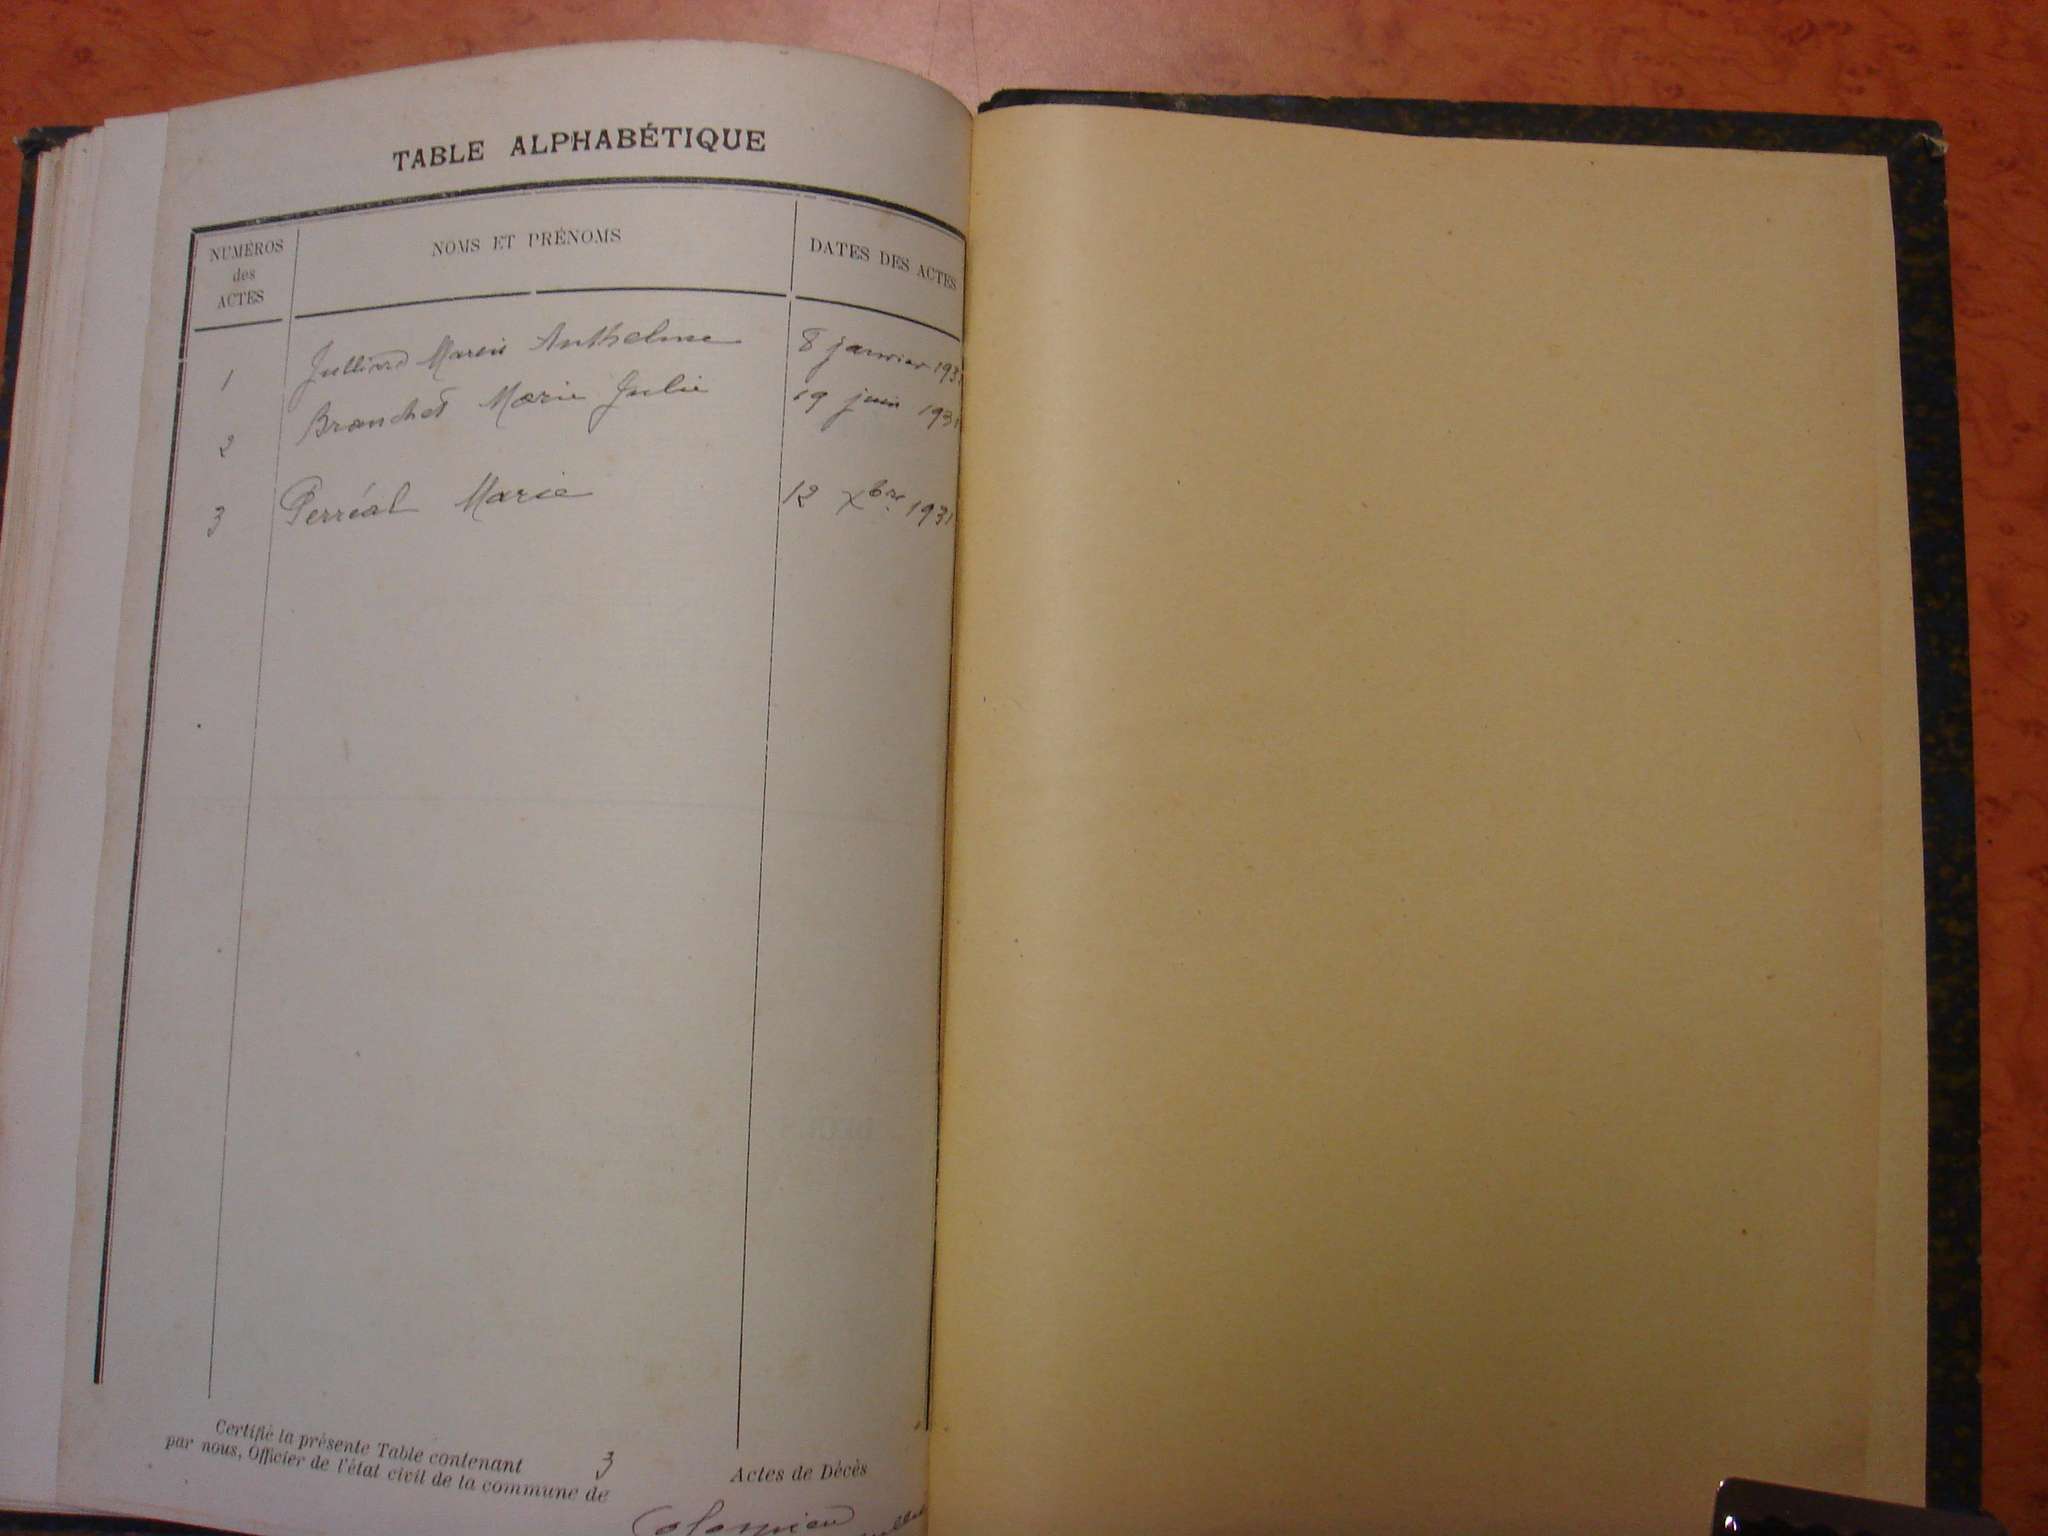 TABLE ALPHABÉTIQUE
NUMÉROS
des
ACTES
NOMS ET PRÉNOMS
DATES DES ACTES
1 Julliard Anthelme 8 janvier 1931
2 Branchet Marie Julie 19 juin 1931
3 Perréal Marie 12 Xbre 1931
Certifié la présente Table contenant 3 Actes de Décès
par nous, Officier de l'état civil de la commune de
Colomieu